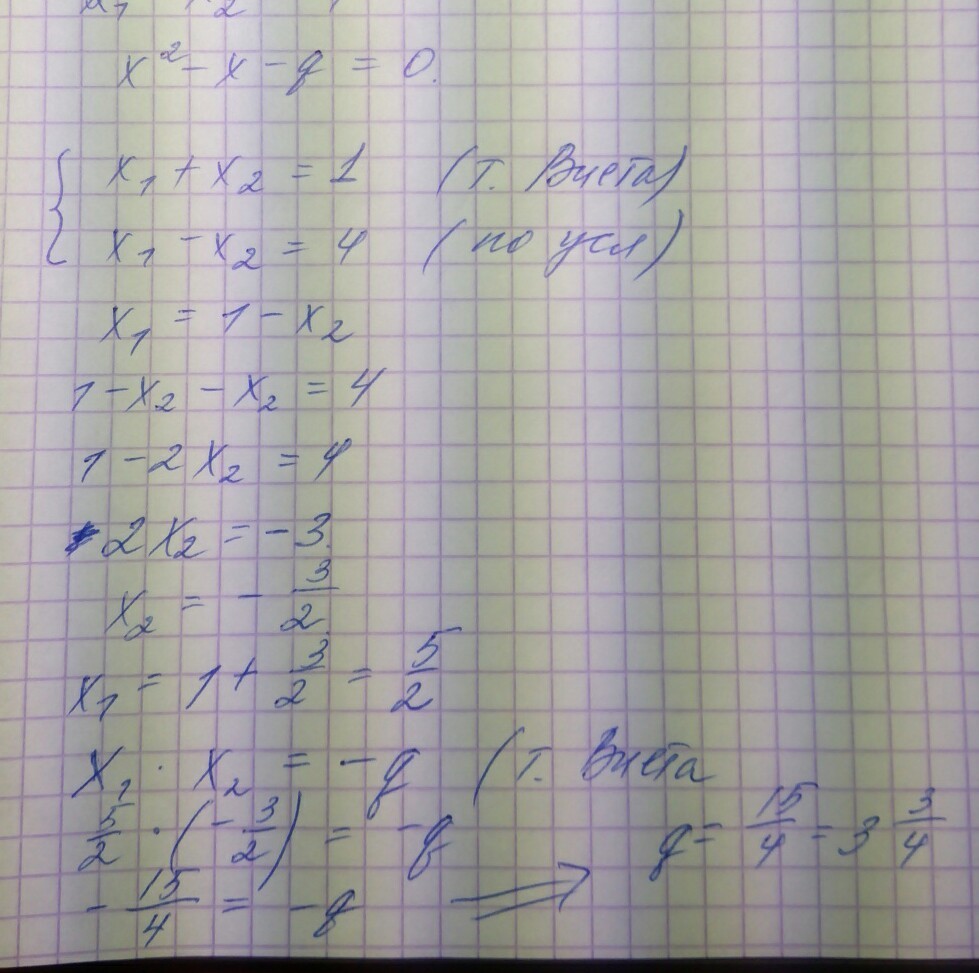 x² - x - q = 0.
x₁ + x₂ = 1 (т. Виета)
x₁ - x₂ = 4 (по усл)
x₁ = 1 - x₂
1 - x₂ - x₂ = 4
1 - 2x₂ = 4
2x₂ = -3.
x₂ = - 3/2
x₁ = 1 + 3/2 = 5/2
x₁ · x₂ = -q (т. Виета
5/2 · (- 3/2) = -q
- 15/4 = -q ⟹ q = 15/4 = 3 3/4